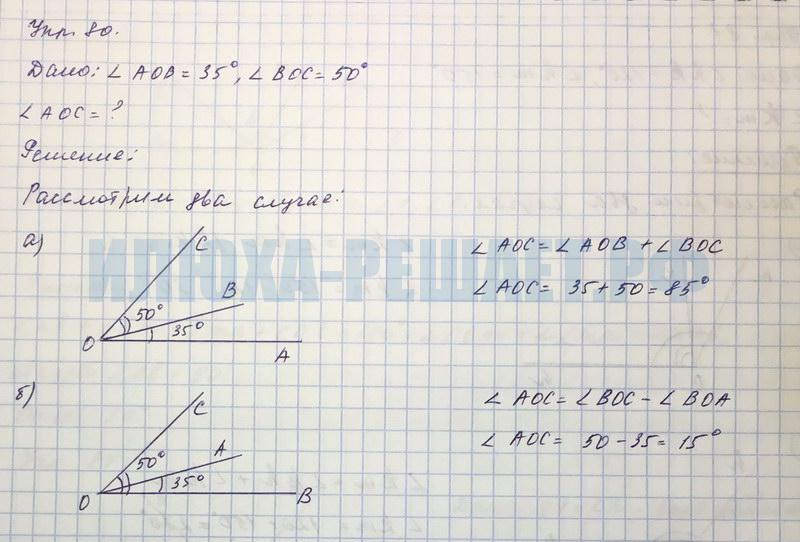 Упр. 80.
Дано: ∠ AOB = 35°, ∠ BOC = 50°
∠ AOC = ?
Решение:
Рассмотрим два случае:
а)
C
B
50°
35°
O
A
∠ AOC = ∠ AOB + ∠ BOC
∠ AOC = 35 + 50 = 85°
ИЛЮХА-РЕШАЕТ.РФ
б)
C
A
50°
35°
O
B
∠ AOC = ∠ BOC - ∠ BOA
∠ AOC = 50 - 35 = 15°